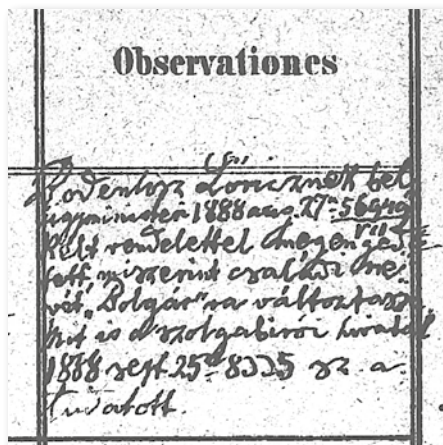 Observationes
Lőrincznek bel
ügyminister 1888 aug. 27-
kelt rendelettel megenged
tett, miszerint családi ne
vét „Polgár”ra változtassa
mit is a szolgabirói hivatal
1888 sept 25- 8335 sz. a.
tudatott.